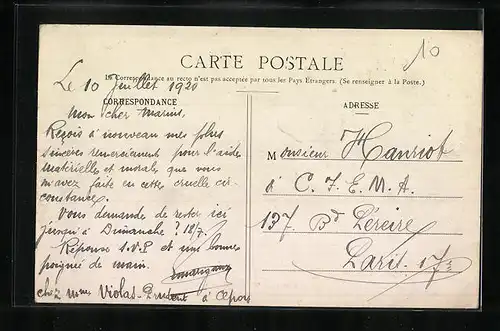 10
CARTE POSTALE
La Correspondance au recto n'est pas acceptée par tous les Pays Etrangers. (Se renseigner à la Poste.)
Le 10 Juillet 1920
CORRESPONDANCE
Mon cher Marius,
Reçois à nouveau mes plus
sincères remerciements pour l'aide
matérielles et morale que vous
m'avez faite en cette cruelle cir-
constance.
Vous demande de rester ici
jusqu'à Dimanche ? 18/7.
Réponse S.V.P et une bonne
poignée de main.
chez Mme Violas-
ADRESSE
Monsieur Hanriot
à C. J. E. M. A.
137. Bd Péreire
Paris. 17e